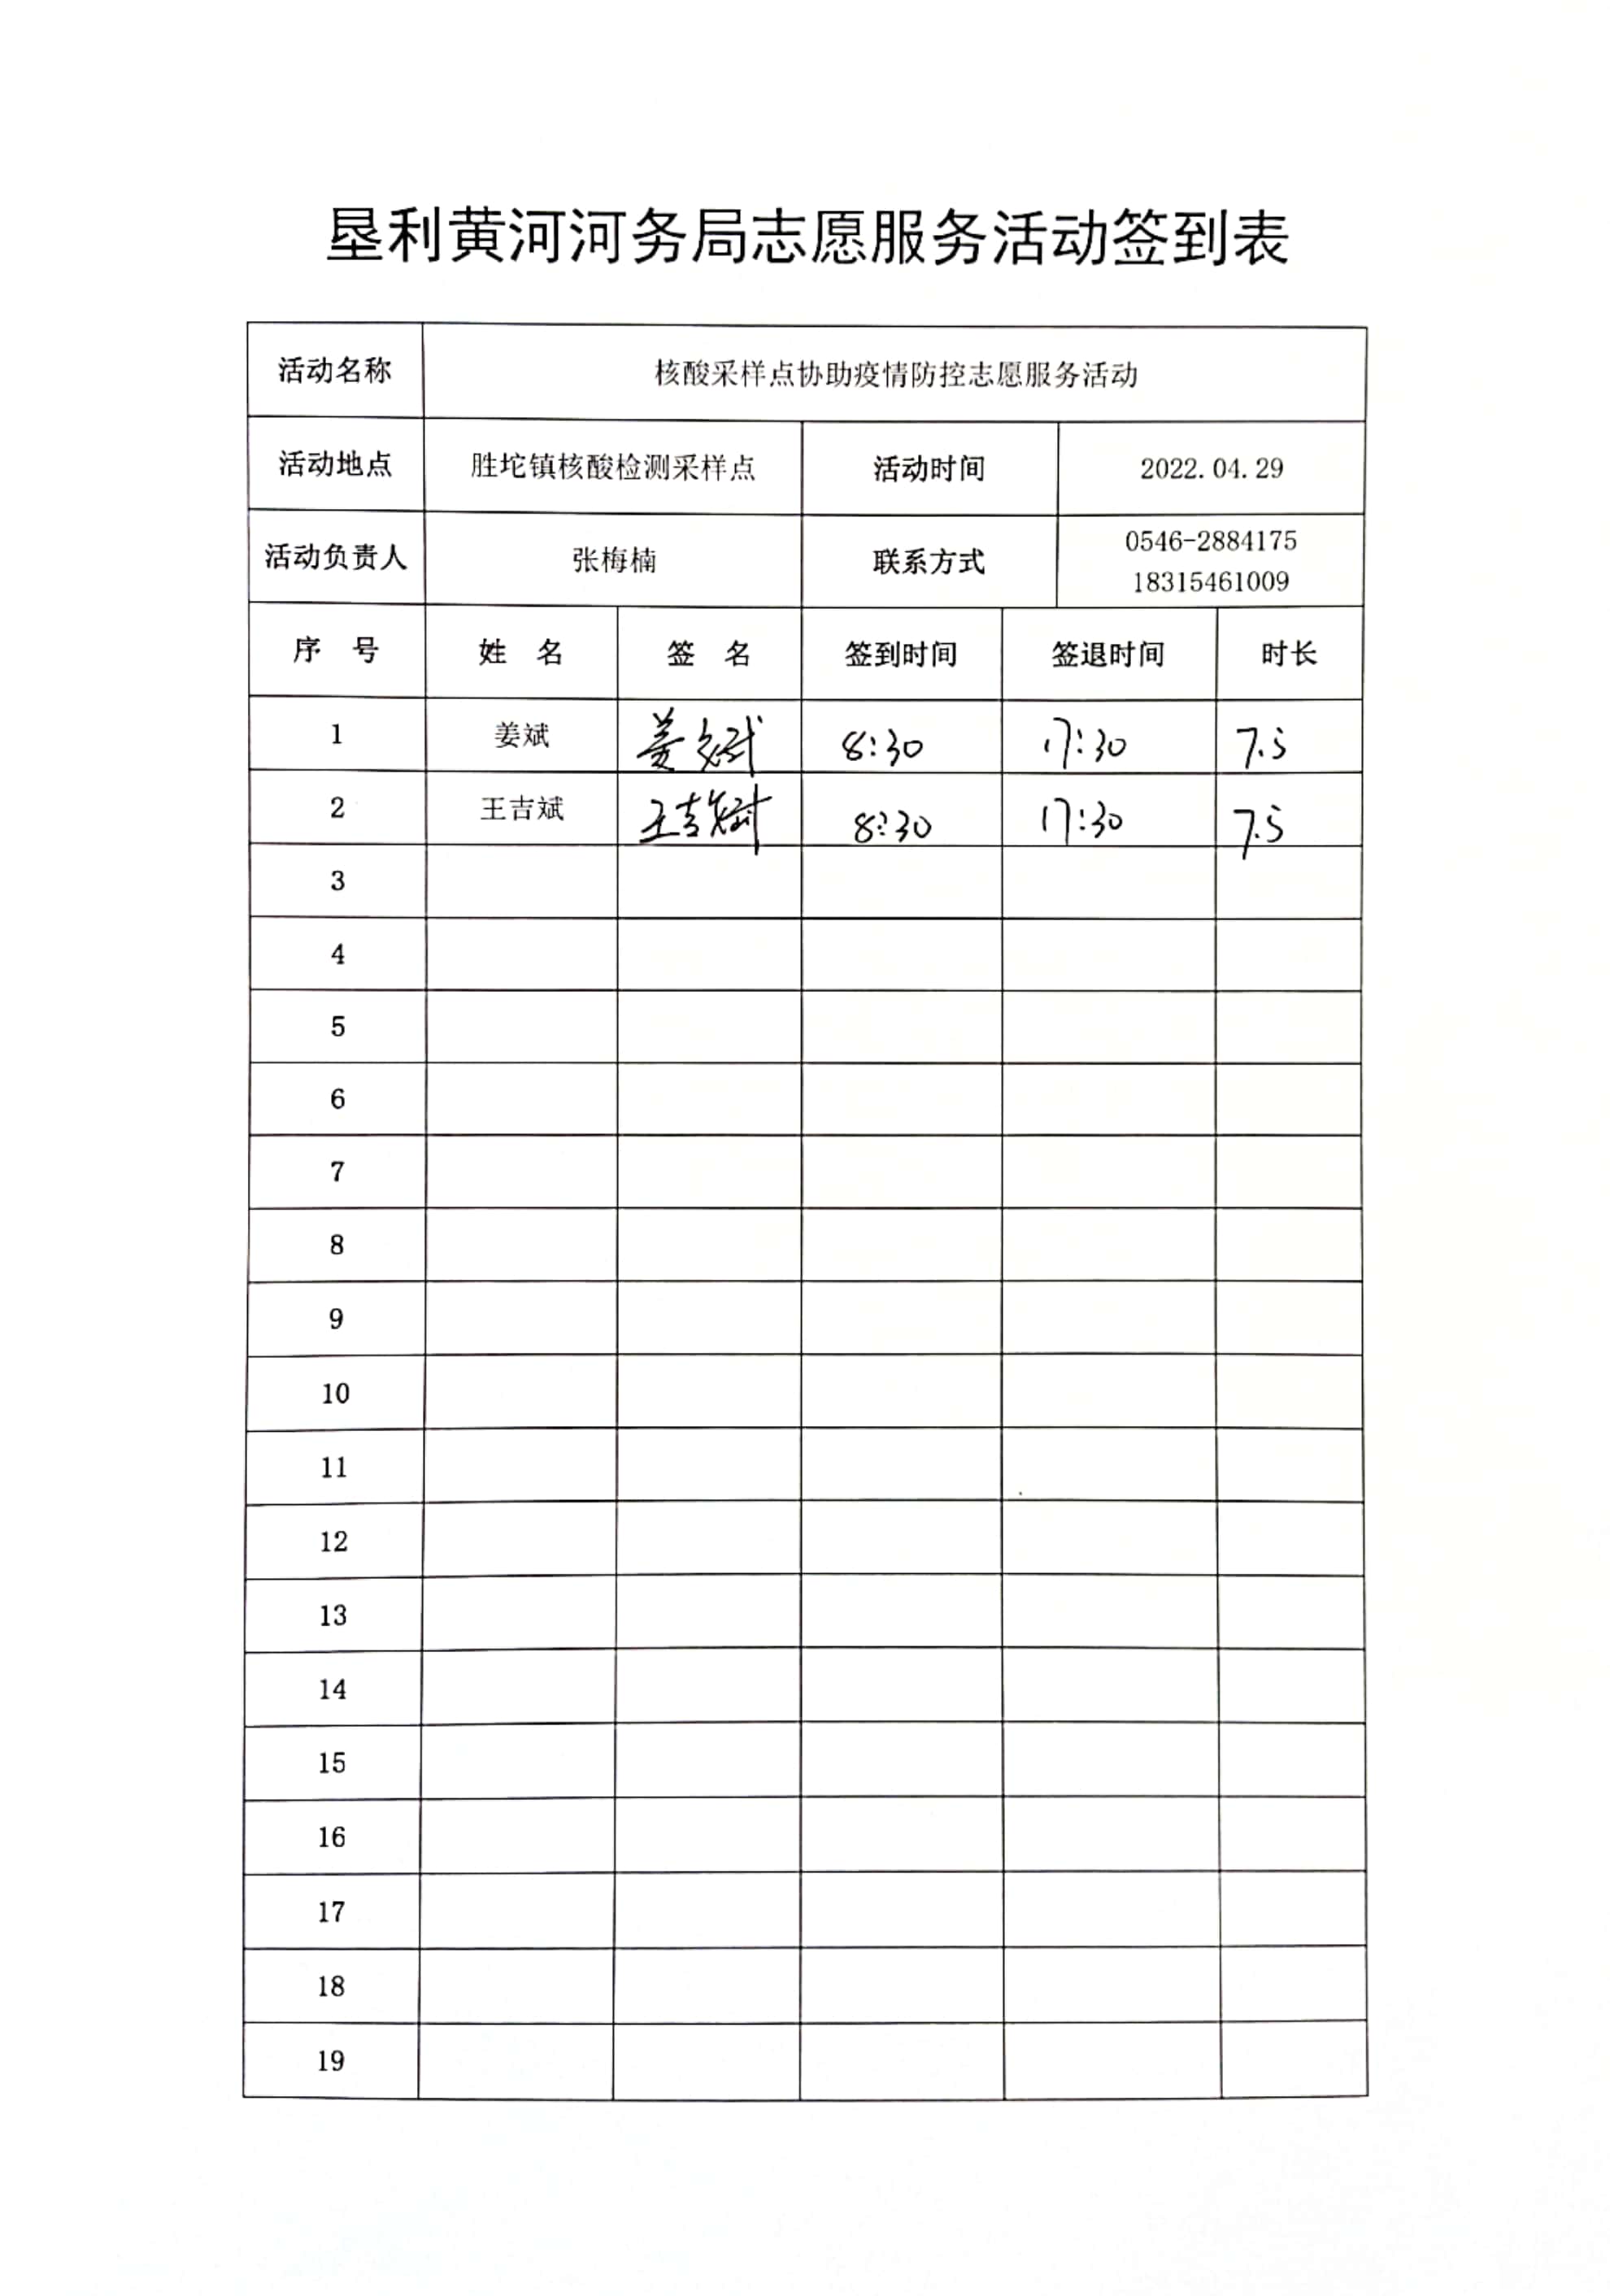 垦利黄河河务局志愿服务活动签到表
活动名称 核酸采样点协助疫情防控志愿服务活动
活动地点 胜坨镇核酸检测采样点 活动时间 2022.04.29
活动负责人 张梅楠 联系方式 0546-2884175
18315461009
序 号 姓 名 签 名 签到时间 签退时间 时长
1 姜斌 姜斌 8:30 17:30 7.5
2 王吉斌 王吉斌 8:30 17:30 7.5
3
4
5
6
7
8
9
10
11
12
13
14
15
16
17
18
19